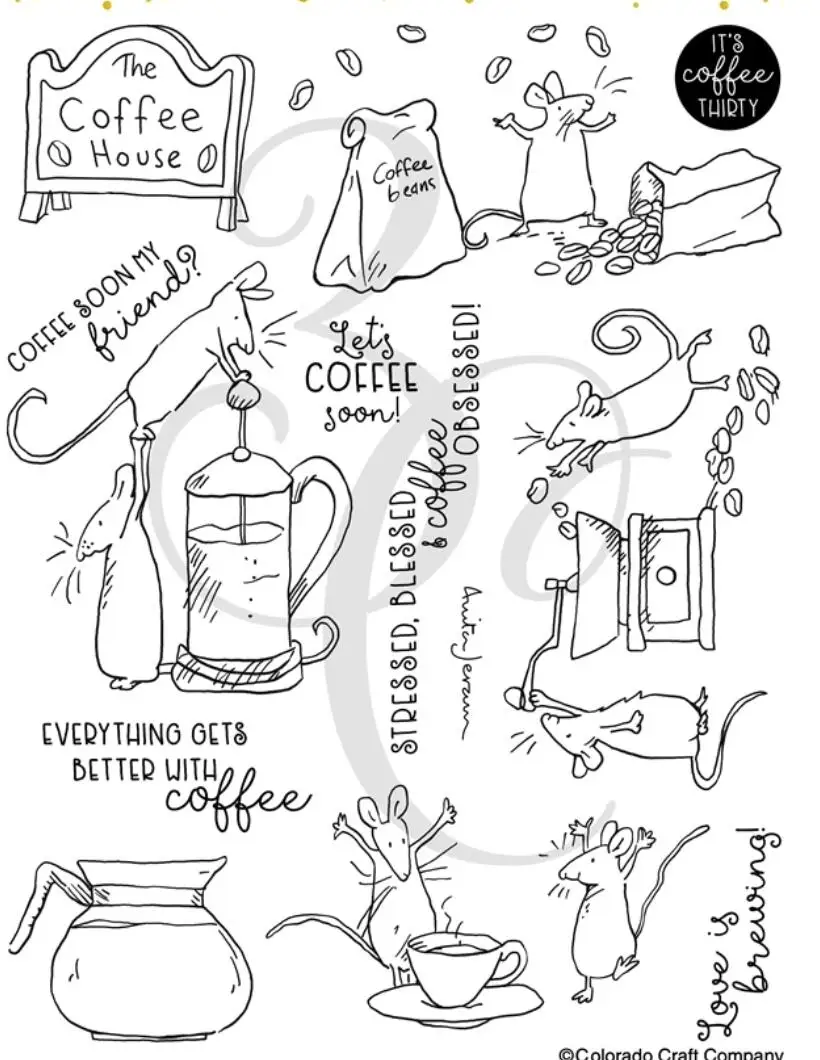 The
Coffee
House
Coffee
beans
IT'S
coffee
THIRTY
COFFEE SOON MY
friend?
Let's
COFFEE
soon!
STRESSED, BLESSED
& coffee
OBSESSED!
Anita Jeram
EVERYTHING GETS
BETTER WITH
coffee
Love is
brewing!
©Colorado Craft Company